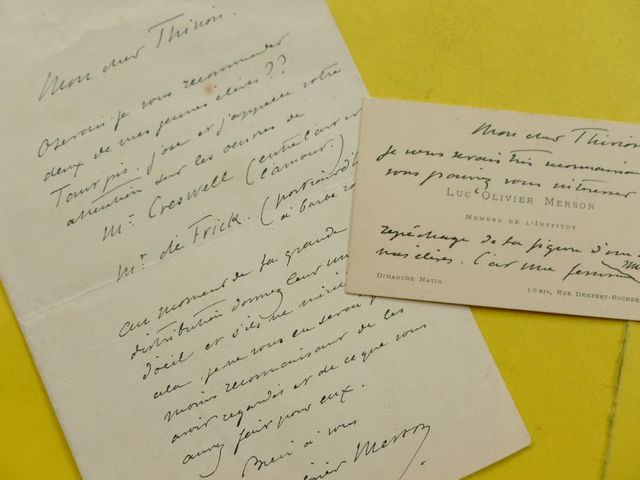 Mon cher Thirion.
Oserais-je vous recommander
deux de mes jeunes élèves??
Tant pis. J'ose et j'appelle votre
attention sur les œuvres de
Mr. Creswell (entre l'art et
l'amour.)
Mr. de Frick. (portrait d
à barbe
au moment de la grande
distribution donnez leur un
d'œil et s'ils ne
cela. je ne vous en serai
moins reconnaissant de les
avoir regardés et de ce que vous
aurez fait pour eux.
Bien à vous
Olivier Merson
Mon cher Thirion
je vous serais très reconnaissan
vous pouviez vous intéresser
Luc-Olivier Merson
Membre de l'Institut
repêchage de la figure d'un
mes élèves. C'est une femme
Dimanche Matin
18 bis, Rue Denfert-Rocher